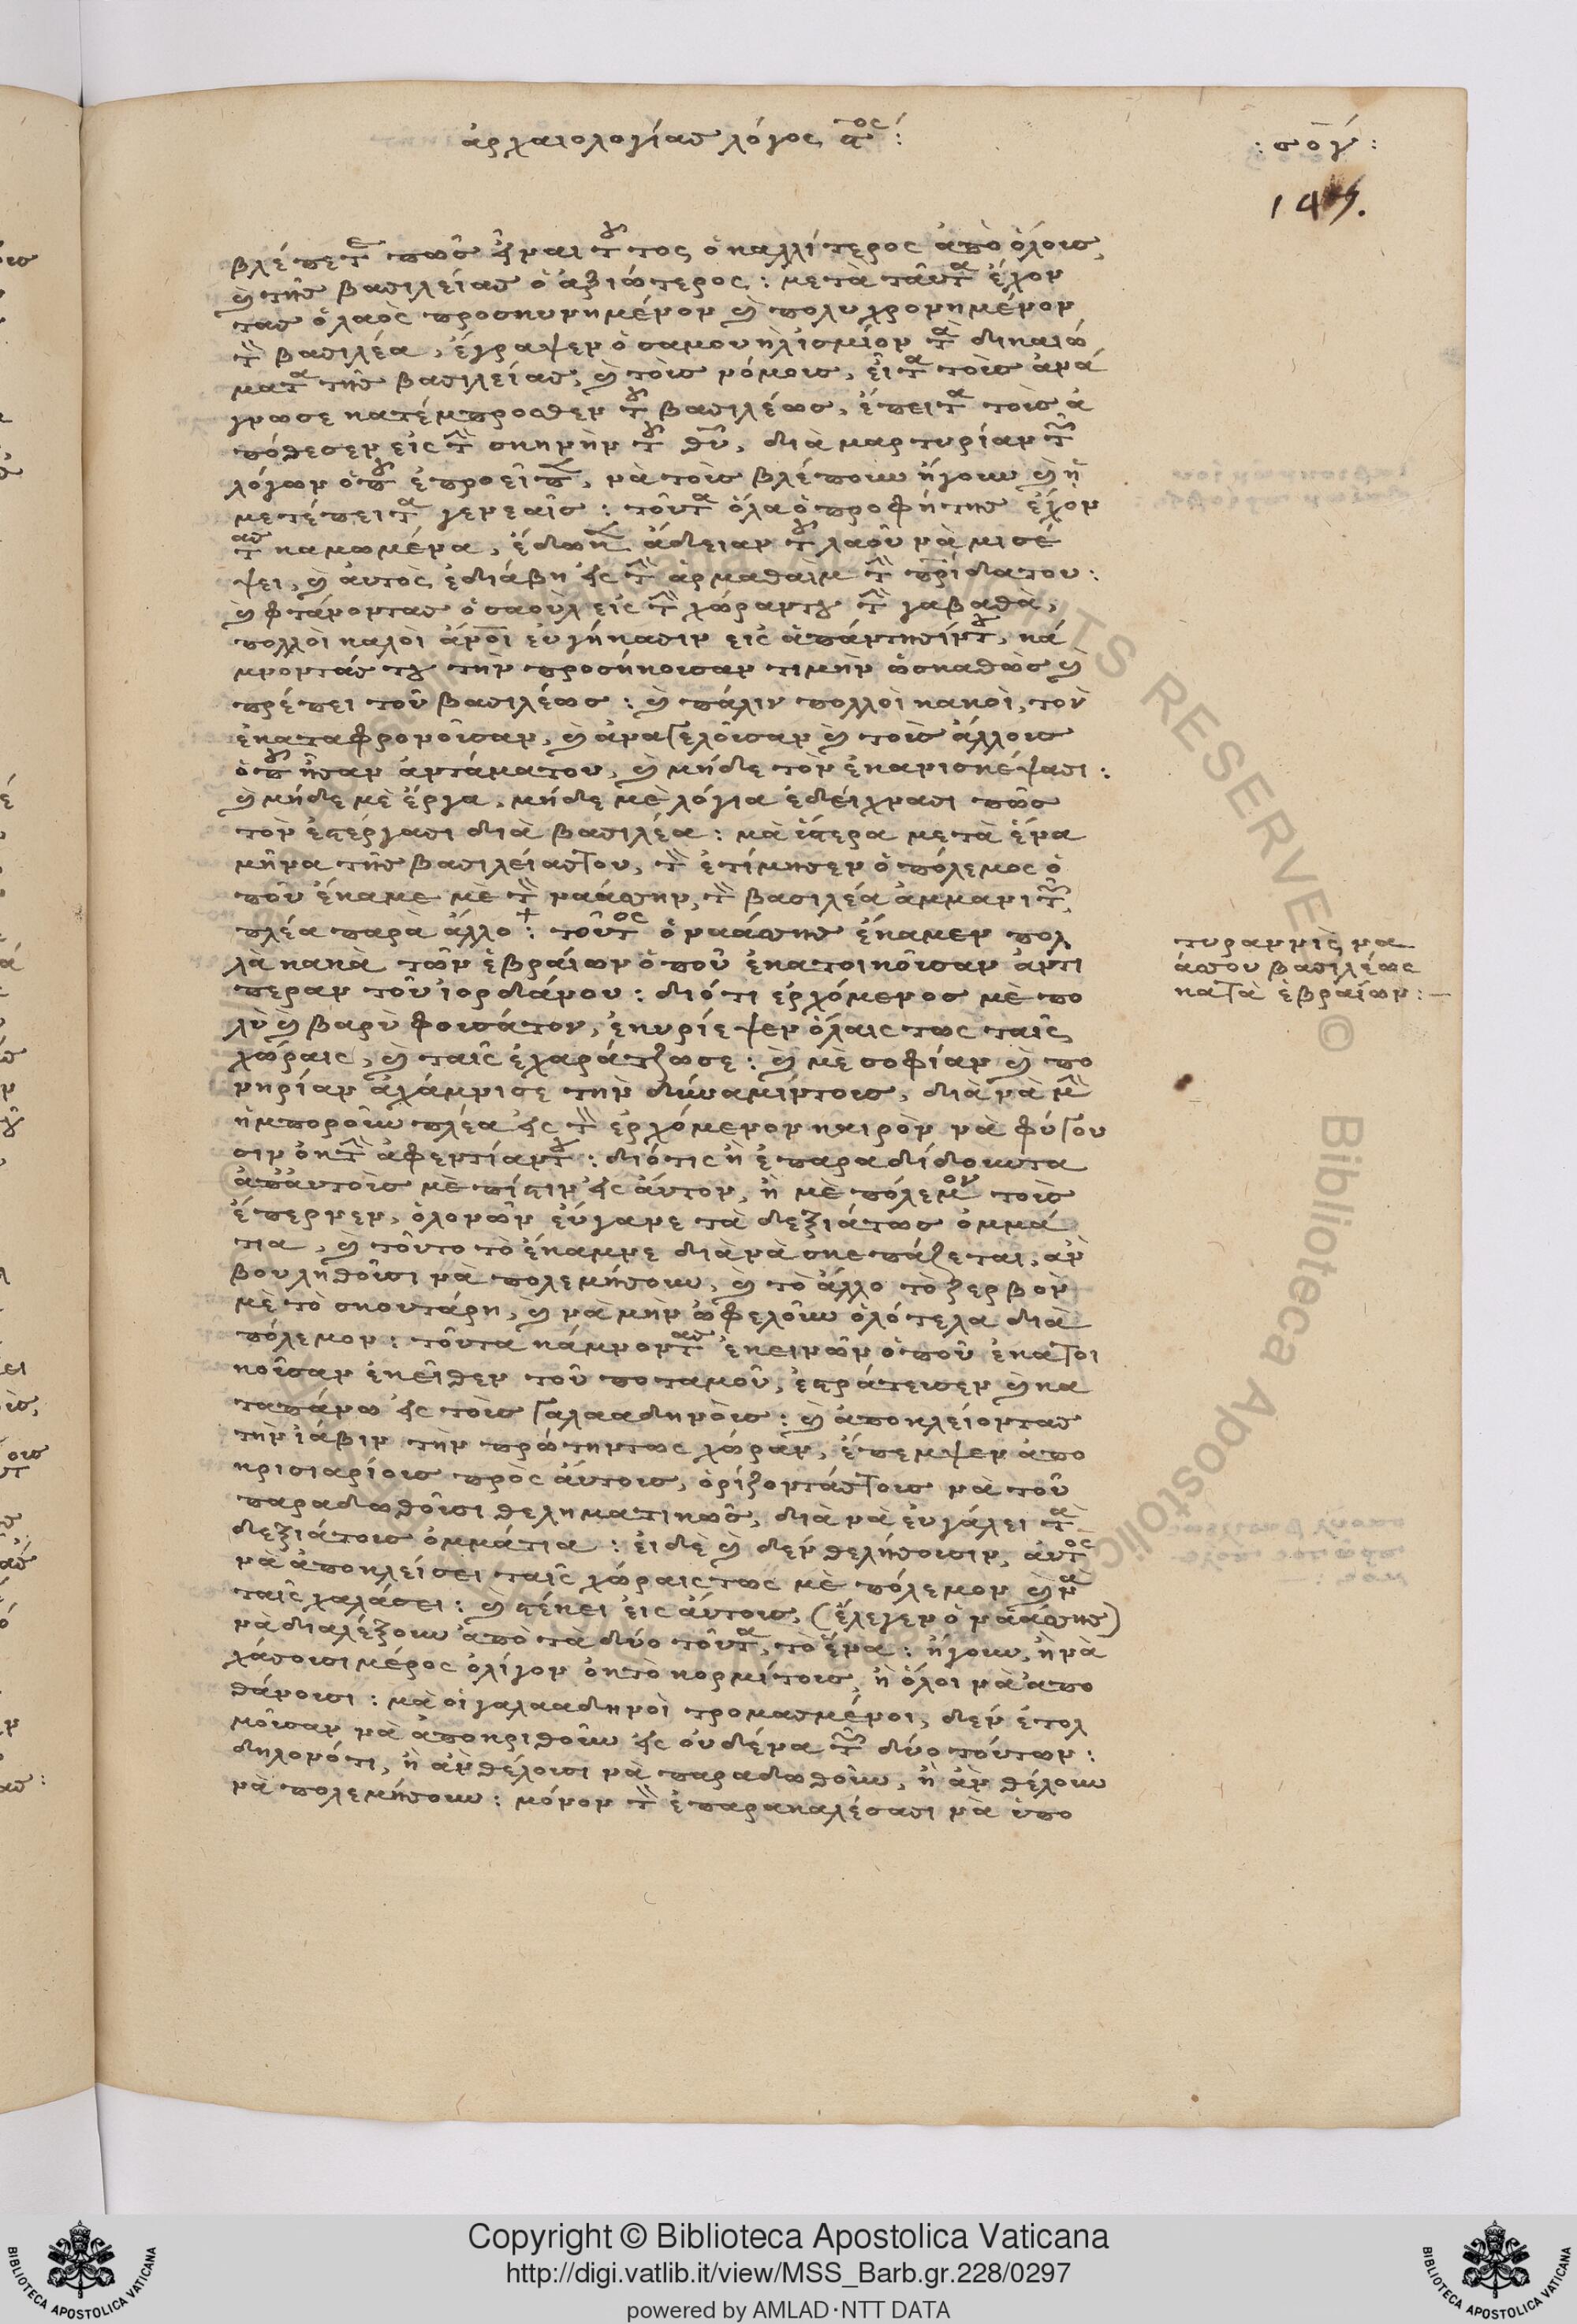 ἀρχαιολογίας λόγος ϛ τος :
: σογ :
149.
βλέπετε πῶς εἶναι τοῦτος ὁ καλλίτερος ἀπὸ ὅλους,
καὶ τῆς βασιλείας ὁ ἀξιώτερος : μετὰ ταῦτα ἔχον
τας ὁ λαὸς προσκυνημένον καὶ πολυχρονημένον
τὸν βασιλέα, ἔγραψεν ὁ σαμουὴλ τὰ δικαιώ
ματα τῆς βασιλείας, καὶ τοὺς νόμους, εἶτα τοὺς ἀνά
γνωσε κατέμπροσθεν τοῦ βασιλέως, ἔπειτα τοὺς ἀ
πόθεσεν εἰς τὴν σκηνὴν τοῦ θῦ, διὰ μαρτυρίαν τῶν
λόγων ὁποῦ ἐπροεῖπεν, νὰ τοὺς βλέπουν ἤγουν καὶ ἡ
μετέπειτα γενεαῖς : τοῦτα ὅλα ὁ προφήτης ἔχον
τας καμωμένα, ἔδωκεν ἄδειαν τοῦ λαοῦ νὰ μισέ
ψει, καὶ αὐτὸς ἐδιάβη εἰς τὴν ἀρμαθαὶμ τὴν πρίδατου :
καὶ φτάνοντας ὁ σαοὺλ εἰς τὴν χώραντου τὴν γαβαθὰ,
πολλοὶ καλοὶ ἄνοι εὐγήκασιν εἰς ἀπάντησίντου, κά
μνοντάς του τὴν προσήκουσαν τιμὴν ὡσκαθὼς καὶ
πρέπει τοῦ βασιλέως : καὶ πάλιν πολλοὶ κακοὶ, τὸν
ἐκαταφρονοῦσαν, καὶ ἀναγελοῦσαν καὶ τοὺς ἄλλους
ὁποῦ ἦσαν ἀντάματου, καὶ μήδε τὸν ἐκανισκέψασι :
καὶ μήδε μὲ ἔργα, μήδε μὲ λόγια ἐδείχνασι πῶς
τὸν ἐστέργασι διὰ βασιλέα : μὰ ὕστερα μετὰ ἕνα
μῆνα τῆς βασιλείαστου, τὸν ἐτίμησεν ὁ πόλεμος ὁ
ποῦ ἔκαμε μὲ τὸν ναάσην, τὸν βασιλέα ἀμμανιτῶν,
πλέα παρὰ ἄλλο : τοῦτος ὁ ναάσης ἔκαμεν πολ
λὰ κακὰ τῶν ἑβραίων ὁποῦ ἐκατοικοῦσαν ἀντί
περαν τοῦ ἰορδάνου : διότι ἐρχόμενος μὲ πο
λὺ καὶ βαρὺ φουσάτον, ἐκυρίεψεν ὅλαις τως ταῖς
χώραις, καὶ ταῖς ἐχαράτζωσε : καὶ μὲ σοφίαν καὶ πο
νηρίαν ἀχάμνισε τὴν δύναμίντους, διὰ νὰ μὴν
ἠμποροῦν πλέα εἰς τὸν ἐρχόμενον καιρὸν νὰ φύγου
σιν ὀκ τὴν ἀφεντίαντου : διότις ἢ ἐπαραδίδουντα
ἀπαυτοὺς μὲ πίστιν εἰς αὐτον, ἢ μὲ πόλεμον τοὺς
ἔπερνεν, ὁλονῶν εὔγανε τὰ δεξιάτως ὀμμά
τια, καὶ τοῦτο τὸ ἔκαμνε διὰ νὰ σκεπάζεται, ἂν
βουληθοῦσι νὰ πολεμήσουν, καὶ τὸ ἄλλο τὸ ζερβὸν
μὲ τὸ σκουτάρη, καὶ νὰ μὴν ὠφελοῦν ὁλότελα διὰ
πόλεμον : τοῦτα κάμνοντας ἐκεινῶν ὁποῦ ἐκατοι
κοῦσαν ἐκεῖθεν τοῦ ποταμοῦ, ἐστράτευσεν καὶ κα
ταπάνω εἰς τοὺς γαλααδηνοὺς : καὶ ἀποκλείοντας
τὴν ἰάβιν τὴν πρώτηντως χώραν, ἔπεμψεν ἀπο
κρισιαρίους πρὸς αὐτους, ὁρίζοντάστους νὰ τοῦ
παραδωθοῦσι θεληματικῶς, διὰ νὰ εὐγάλει τὰ
δεξιάτους ὀμμάτια : εἰδὲ καὶ δὲν θελήσουσιν, αὐτὸς
νὰ ἀποκλείσει ταῖς χώραις τως μὲ πόλεμον καὶ νὰ
ταῖς χαλάσει : καὶ στέκει εἰς αὐτους, (ἔλεγεν ὁ ναάσης)
νὰ διαλέξουν ἀπὸ τὰ δύο τοῦτα, τὸ ἕνα : ἤγουν, ἢ νὰ
χάσουσι μέρος ὀλίγον ὀκ τὸ κορμίτους, ἢ ὅλοι νὰ ἀπο
θάνουσι : μὰ οἱ γαλααδηνοὶ τρομασμένοι, δὲν ἐτολ
μοῦσαν νὰ ἀποκριθοῦν εἰς οὐδένα τῶν δύο τούτων :
δηλονότι, ἢ ἂν θέλουσι νὰ παραδωθοῦν, ἢ ἂν θέλουν
νὰ πολεμήσουν : μόνον τὸν ἐπαρακαλέσασι νὰ ὑπο
τυραννὶς να
άσου βασιλέως
κατὰ ἑβραίων :—
Copyright © Biblioteca Apostolica Vaticana
http://digi.vatlib.it/view/MSS_Barb.gr.228/0297
powered by AMLAD·NTT DATA